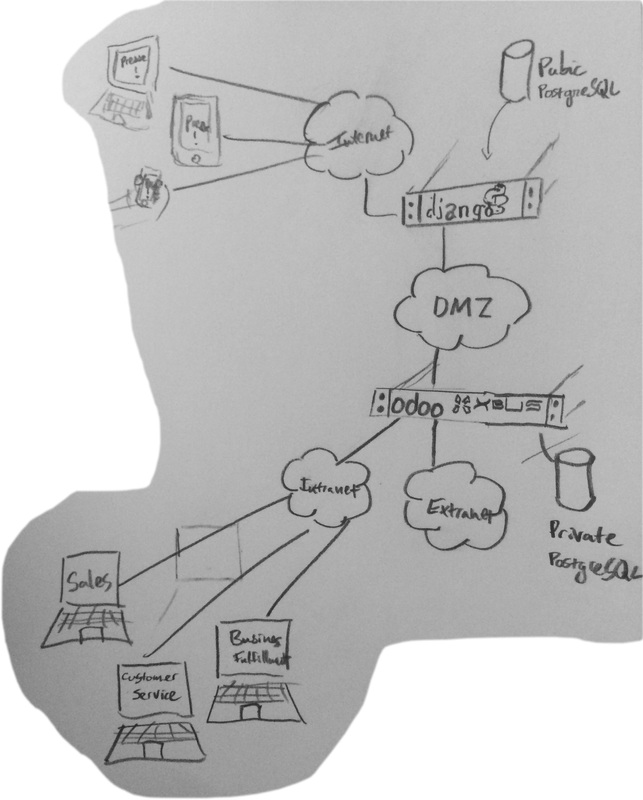 Presse
!
Presse
!
Internet
Pubic
PostgreSQL
django
DMZ
odoo
Intranet
Extranet
Private
PostgreSQL
Sales
Customer
Service
Busines
Fulfillment